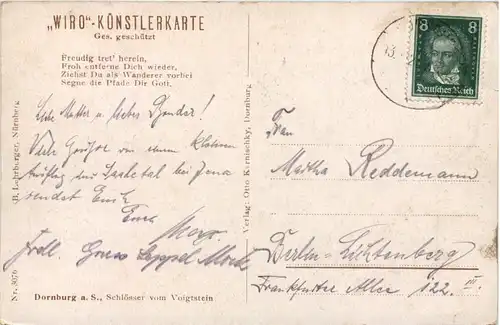 „WIRO“-KÜNSTLERKARTE
Ges. geschützt
Freudig tret' herein,
Froh entferne Dich wieder,
Ziehst Du als Wanderer vorbei
Segne die Pfade Dir Gott.
Liebe Mutter u. lieber Bruder!
Viele Grüße von einem kleinen
Ausflug ins Saaletal bei Jena
sendet Euch
Euer
Max.
Frdl. Gruss
Dornburg a. S., Schlösser vom Voigtstein
Nr. 3076
R. Lehrberger, Nürnberg
Verlag: Otto Karnischky, Dornburg
8 8
Deutsches Reich
13.
Frau
Martha Reddemann
Berlin-Lichtenberg
Frankfurter Allee 122 III